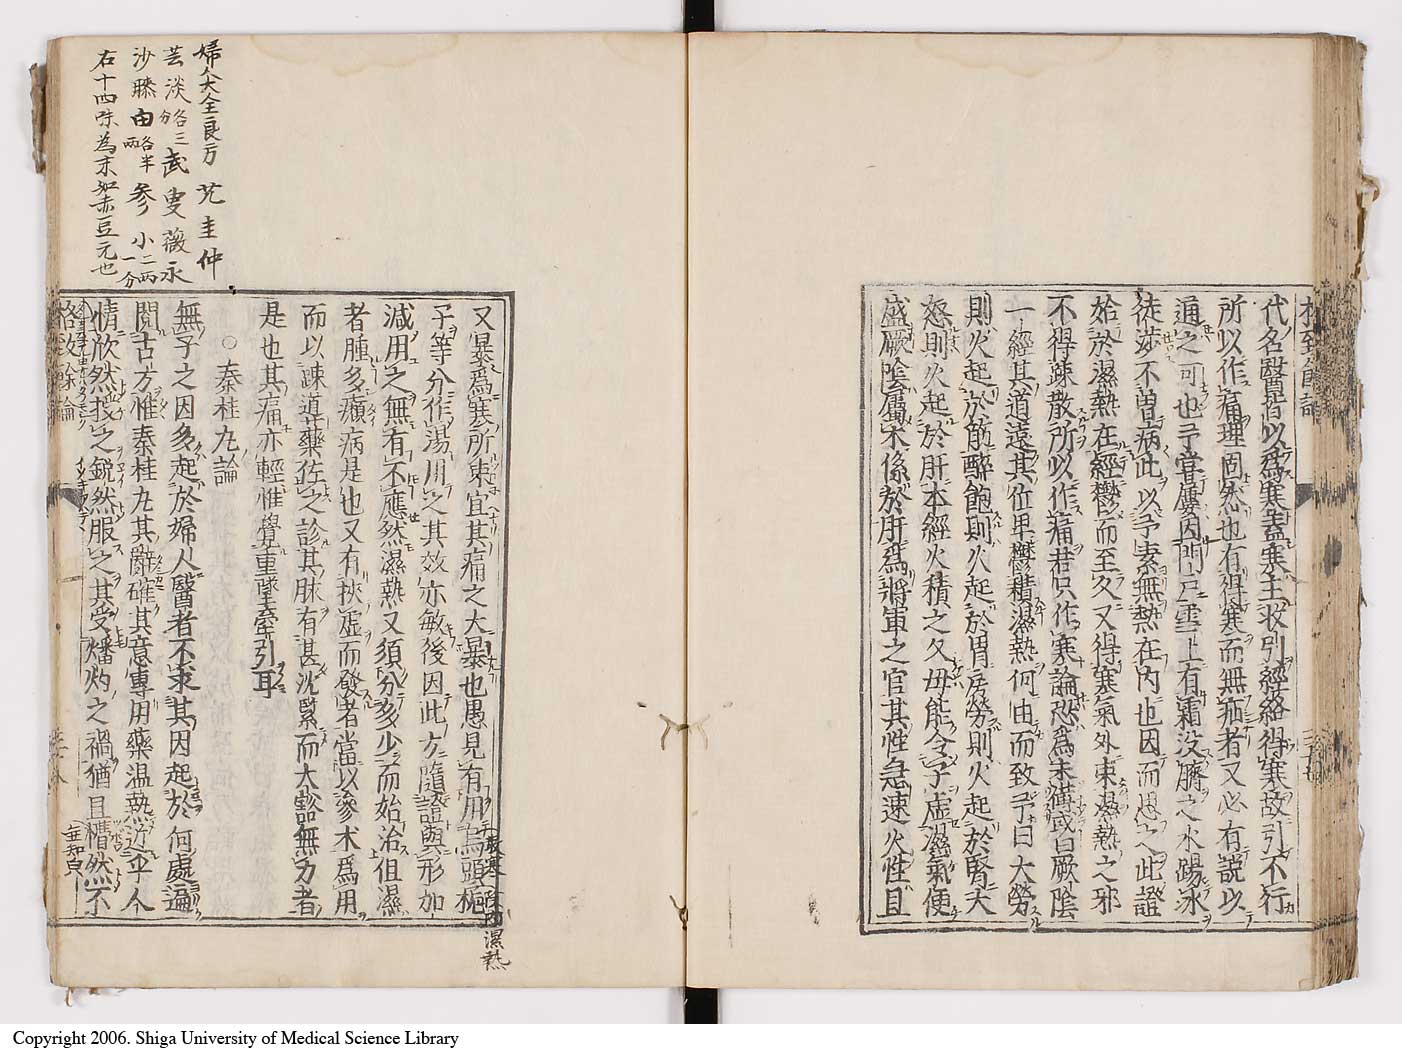 代名醫皆以爲寒蓋寒主收引經絡得寒故引不行
所以作痛理固然也有得寒而無疝者又必有說以
通之可也予嘗屢因門戶雪上有霜沒臍之水踢氷
徒渉不曽病此以予素無熱在內也因而思之此證
始於濕熱在經鬱而至久又得寒氣外束濕熱之邪
不得踈散所以作痛若只作寒論恐爲未備或曰厥陰
一經其道遠其位卑鬱積濕熱何由而致予曰大勞
則火起於筋醉飽則火起於胃房勞則火起於腎大
怒則火起於肝本經火積之久毋能令子虛濕氣便
盛厥陰屬木係於肝爲將軍之官其性急速火性且
又暴爲寒所束宜其痛之大暴也愚見有用烏頭梔
子等分作湯用之其效亦敏後因此方隨證與形加
減用之無有不應然濕熱又須分多少而始治但濕
者腫多㿗病是也又有挾虛而發者當以參朮爲用
而以踈道藥佐之診其脉有甚沈緊而大豁無力者
是也其痛亦輕惟覺重墜牽引耳
○秦桂丸論
無子之因多起於婦人醫者不求其因起於何處遍
閱古方惟秦桂丸其辭確其意專用藥温熱近乎人
情欣然授之鋭然服之其受燔灼之禍猶且懵然不
格致餘論
婦人大全良方
右十四味為末如赤豆元也
濕熱